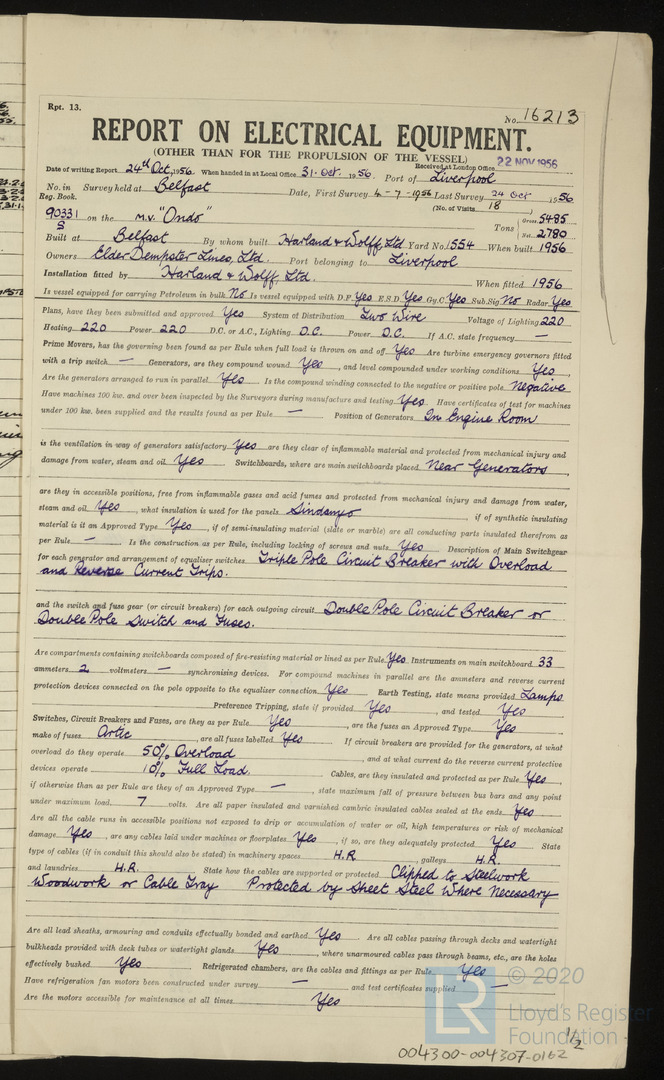 Rpt. 13.
No. 16213
REPORT ON ELECTRICAL EQUIPMENT.
(OTHER THAN FOR THE PROPULSION OF THE VESSEL)
Received at London Office 22 NOV 1956
Date of writing Report 24th Oct, 1956. When handed in at Local Office 31. Oct. 1956. Port of Liverpool
No. in Reg. Book. Survey held at Belfast Date, First Survey 4-7-1956 Last Survey 24 Oct 1956
(No. of Visits 18 )
90331 S on the m.v. "Ondo" Tons Gross 5435 Net 2780
Built at Belfast By whom built Harland & Wolff, Ltd Yard No. 1554 When built 1956
Owners Elder Dempster Lines, Ltd. Port belonging to Liverpool
Installation fitted by Harland & Wolff, Ltd. When fitted 1956
Is vessel equipped for carrying Petroleum in bulk No Is vessel equipped with D.F. Yes E.S.D. Yes Gy.C. Yes Sub.Sig. No Radar Yes
Plans, have they been submitted and approved Yes System of Distribution Two Wire Voltage of Lighting 220
Heating 220 Power 220 D.C. or A.C., Lighting D.C. Power D.C. If A.C. state frequency —
Prime Movers, has the governing been found as per Rule when full load is thrown on and off Yes Are turbine emergency governors fitted
with a trip switch — Generators, are they compound wound Yes, and level compounded under working conditions Yes,
Are the generators arranged to run in parallel Yes. Is the compound winding connected to the negative or positive pole Negative
Have machines 100 kw. and over been inspected by the Surveyors during manufacture and testing Yes Have certificates of test for machines
under 100 kw. been supplied and the results found as per Rule — Position of Generators In Engine Room
is the ventilation in way of generators satisfactory Yes are they clear of inflammable material and protected from mechanical injury and
damage from water, steam and oil Yes Switchboards, where are main switchboards placed Near Generators,
are they in accessible positions, free from inflammable gases and acid fumes and protected from mechanical injury and damage from water,
steam and oil Yes, what insulation is used for the panels Sindanyo, if of synthetic insulating
material is it an Approved Type Yes, if of semi-insulating material (slate or marble) are all conducting parts insulated therefrom as
per Rule — Is the construction as per Rule, including locking of screws and nuts Yes Description of Main Switchgear
for each generator and arrangement of equaliser switches Triple Pole Circuit Breaker with Overload
and Reverse Current Trips.
and the switch and fuse gear (or circuit breakers) for each outgoing circuit Double Pole Circuit Breaker or
Double Pole Switch and Fuses.
Are compartments containing switchboards composed of fire-resisting material or lined as per Rule Yes Instruments on main switchboard 33
ammeters 2 voltmeters — synchronising devices. For compound machines in parallel are the ammeters and reverse current
protection devices connected on the pole opposite to the equaliser connection Yes Earth Testing, state means provided Lamps
Preference Tripping, state if provided Yes, and tested Yes
Switches, Circuit Breakers and Fuses, are they as per Rule Yes, are the fuses an Approved Type Yes
make of fuses Artic, are all fuses labelled Yes If circuit breakers are provided for the generators, at what
overload do they operate 50% Overload, and at what current do the reverse current protective
devices operate 10% Full Load. Cables, are they insulated and protected as per Rule Yes,
if otherwise than as per Rule are they of an Approved Type —, state maximum fall of pressure between bus bars and any point
under maximum load 7 volts. Are all paper insulated and varnished cambric insulated cables sealed at the ends Yes
Are all the cable runs in accessible positions not exposed to drip or accumulation of water or oil, high temperatures or risk of mechanical
damage Yes, are any cables laid under machines or floorplates Yes, if so, are they adequately protected Yes State
type of cables (if in conduit this should also be stated) in machinery spaces H.R, galleys H.R.
and laundries H.R. State how the cables are supported or protected Clipped to Steelwork
Woodwork or Cable Tray Protected by Sheet Steel Where Necessary
Are all lead sheaths, armouring and conduits effectually bonded and earthed Yes Are all cables passing through decks and watertight
bulkheads provided with deck tubes or watertight glands Yes, where unarmoured cables pass through beams, etc., are the holes
effectively bushed Yes Refrigerated chambers, are the cables and fittings as per Rule Yes
Have refrigeration fan motors been constructed under survey — and test certificates supplied —
Are the motors accessible for maintenance at all times Yes
LR © 2020
Lloyd's Register
Foundation
1/2
004300-004307-0162